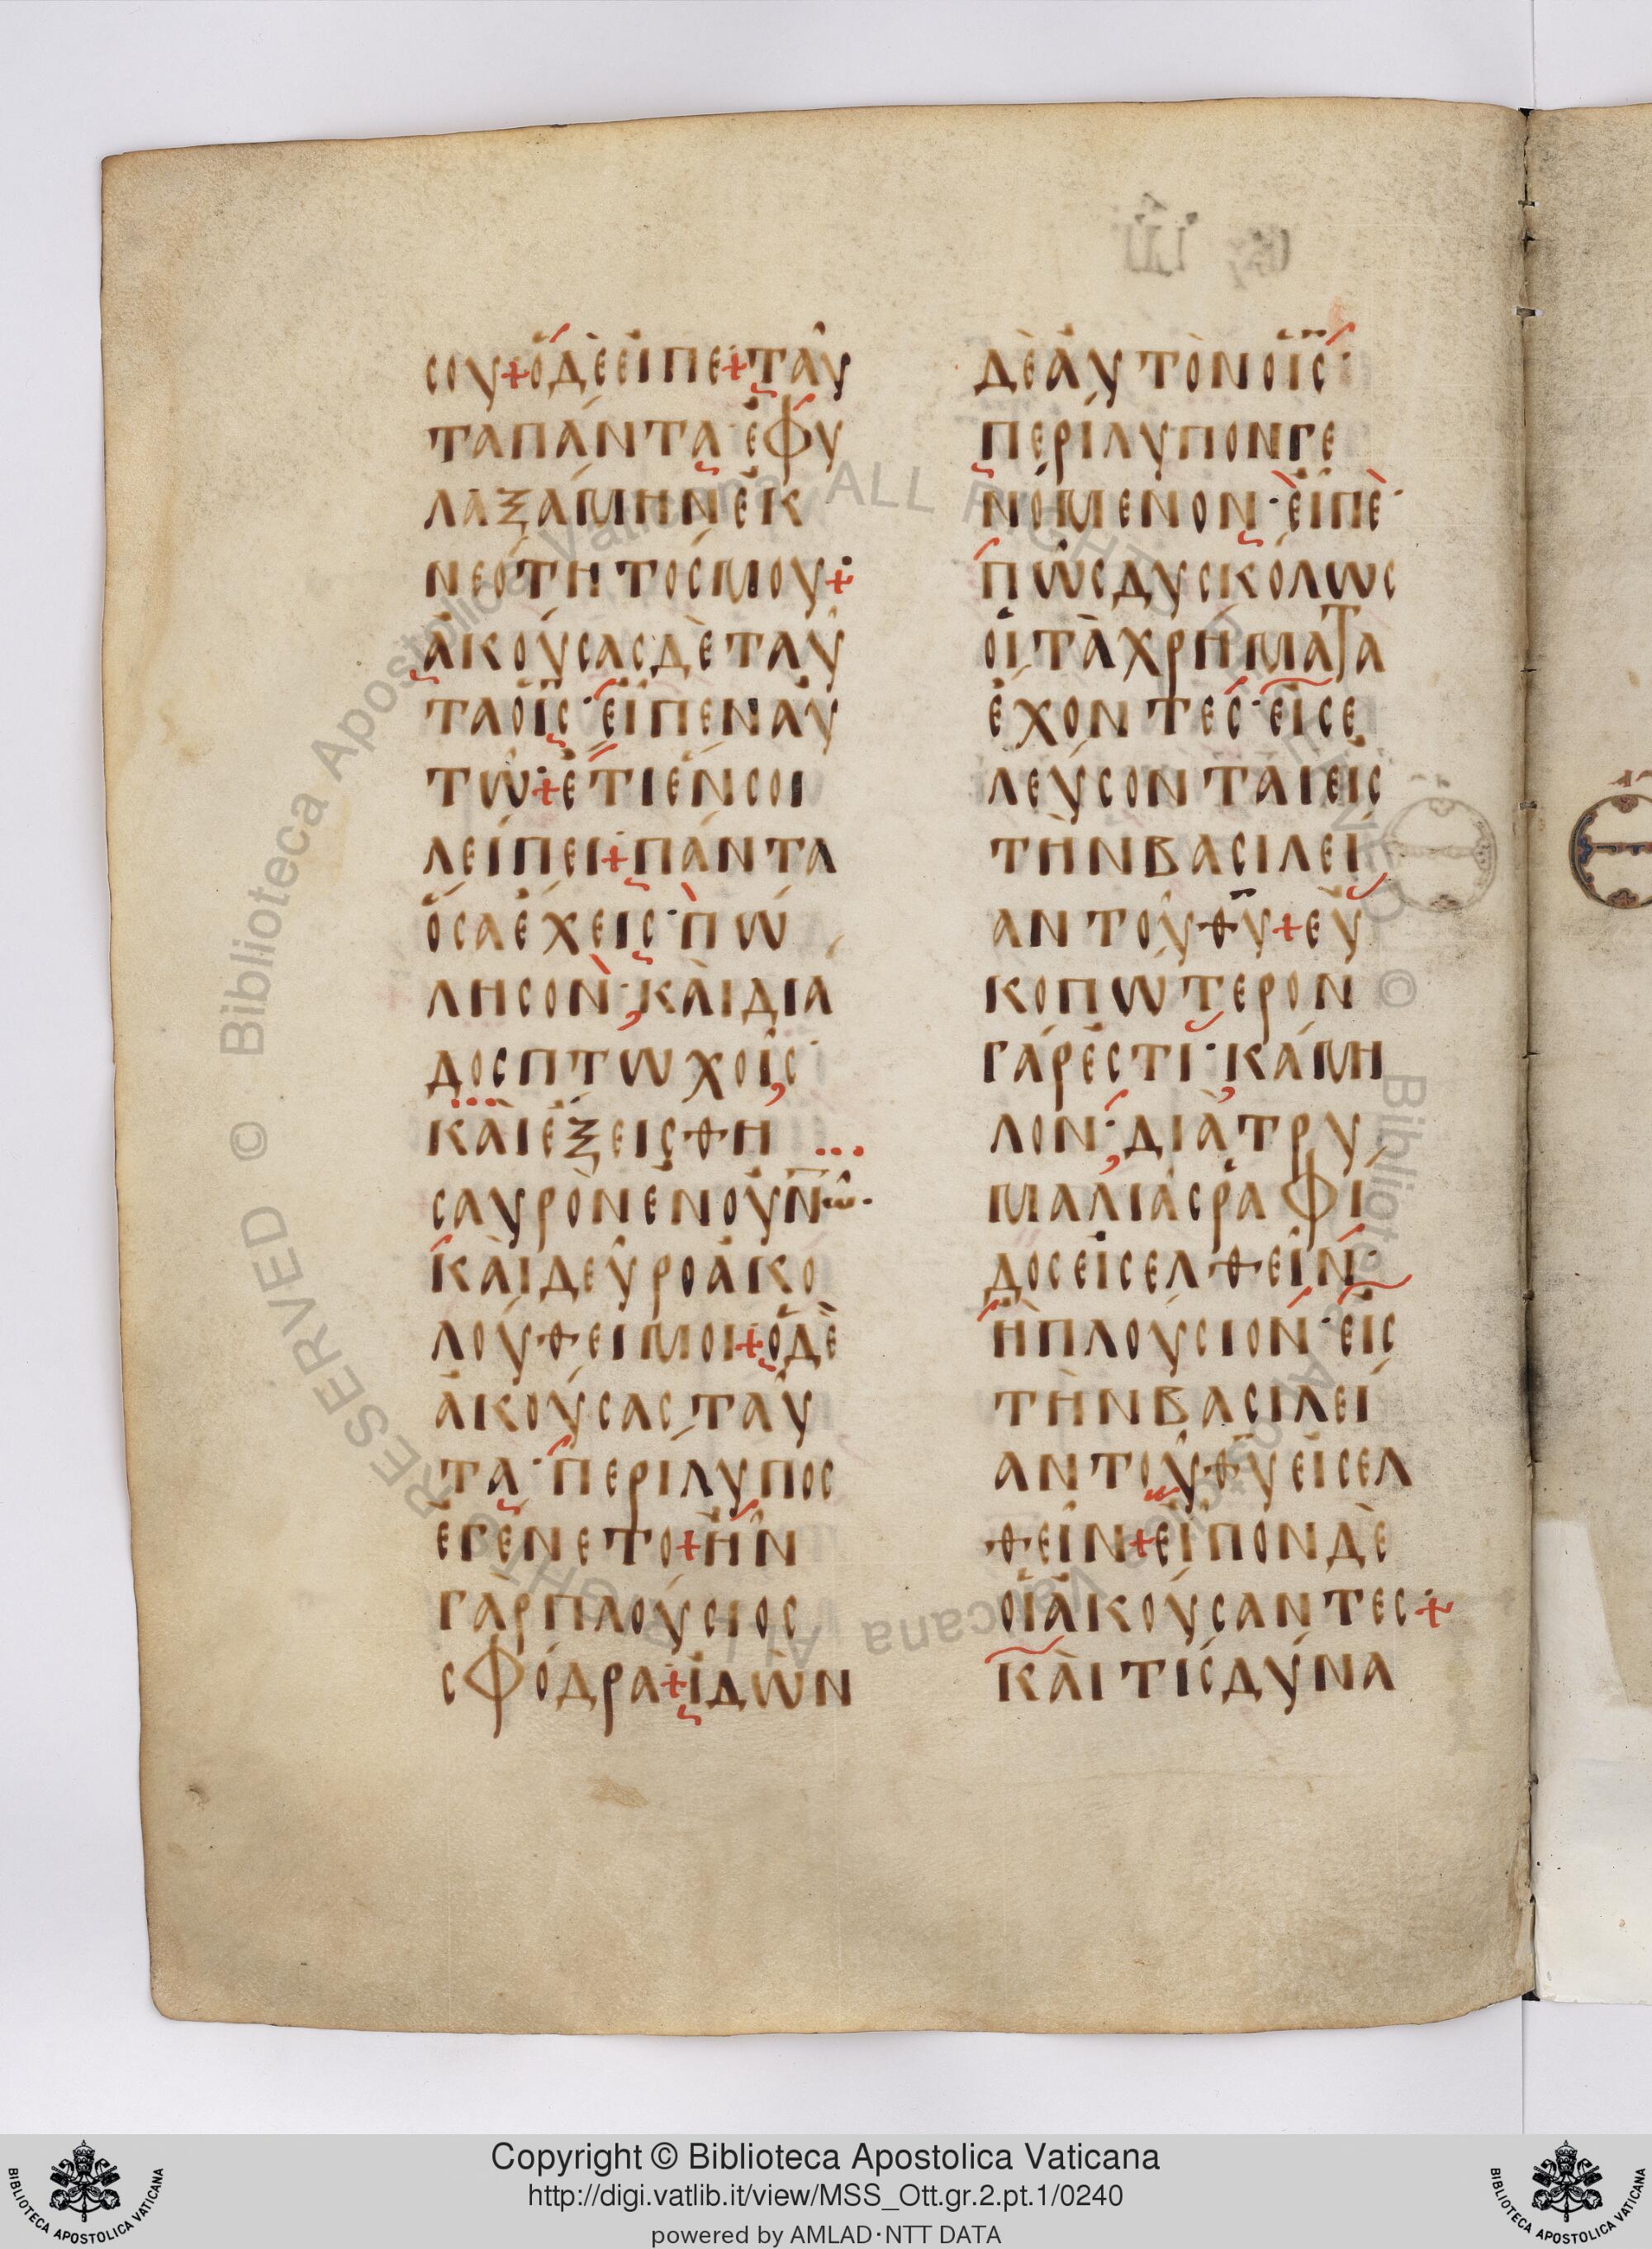 ϹΟΥ+ὉΔῈΕἾΠΕ+ΤΑῦ
ΤΑΠΆΝΤΑ·ἘΦΥ
ΛΑΞΆΜΗΝἘΚ
ΝΕΌΤΗΤΟϹΜΟΥ+
ἈΚΟΎϹΑϹΔῈΤΑῦ
ΤΑὉΙ̅Ϲ̅·ΕἾΠΕΝΑὐ
Τῶ+ἜΤΙἝΝϹΟΙ
ΛΕΊΠΕΙ+ΠΆΝΤΑ
ὍϹΑἜΧΕΙϹ·ΠΏ
ΛΗϹΟΝ·ΚΑῚΔΙΆ
ΔΟϹΠΤΩΧΟῖϹ·
ΚΑῚἝΞΕΙϹΘΗ
ϹΑΥΡῸΝἘΝΟΥ̓Ν̅ῶ·
ΚΑῚΔΕῦΡΟἈΚΟ
ΛΟΎΘΕΙΜΟΙ+ὉΔῈ
ἈΚΟΎϹΑϹΤΑῦ
ΤΑ·ΠΕΡΊΛΥΠΟϹ
ἘΓΈΝΕΤΟ+ἮΝ
ΓᾺΡΠΛΟΎϹΙΟϹ
ϹΦΌΔΡΑ+ἸΔῺΝ
ΔῈΑὐΤῸΝὉΙ̅Ϲ̅·
ΠΕΡΊΛΥΠΟΝΓΕ
ΝΌΜΕΝΟΝ·ΕἾΠΕ·
ΠῶϹΔΥϹΚΌΛΩϹ
ΟἹΤᾺΧΡΉΜΑΤΑ
ἜΧΟΝΤΕϹ·ΕἸϹΕ
ΛΕΎϹΟΝΤΑΙΕἸϹ
ΤῊΝΒΑϹΙΛΕΊ
ΑΝΤΟῦΘ̅Υ̅+Εὐ
ΚΟΠΏΤΕΡΟΝ
ΓΆΡἘϹΤΙ·ΚΆΜΗ
ΛΟΝ·ΔΙᾺΤΡΥ
ΜΑΛΙᾶϹῬΑΦΊ
ΔΟϹΕἸϹΕΛΘΕῖΝ·
ἪΠΛΟΎϹΙΟΝ·ΕἸϹ
ΤῊΝΒΑϹΙΛΕΊ
ΑΝΤΟῦΘ̅Υ̅ΕἸϹΕΛ
ΘΕῖΝ+ΕἾΠΟΝΔῈ
ΟἹἈΚΟΎϹΑΝΤΕϹ+
ΚΑῚΤΊϹΔΎΝΑ
© Biblioteca Apostolica Vaticana ALL RIGHTS RESERVED
Copyright © Biblioteca Apostolica Vaticana
http://digi.vatlib.it/view/MSS_Ott.gr.2.pt.1/0240
powered by AMLAD·NTT DATA
BIBLIOTECA APOSTOLICA VATICANA
BIBLIOTECA APOSTOLICA VATICANA